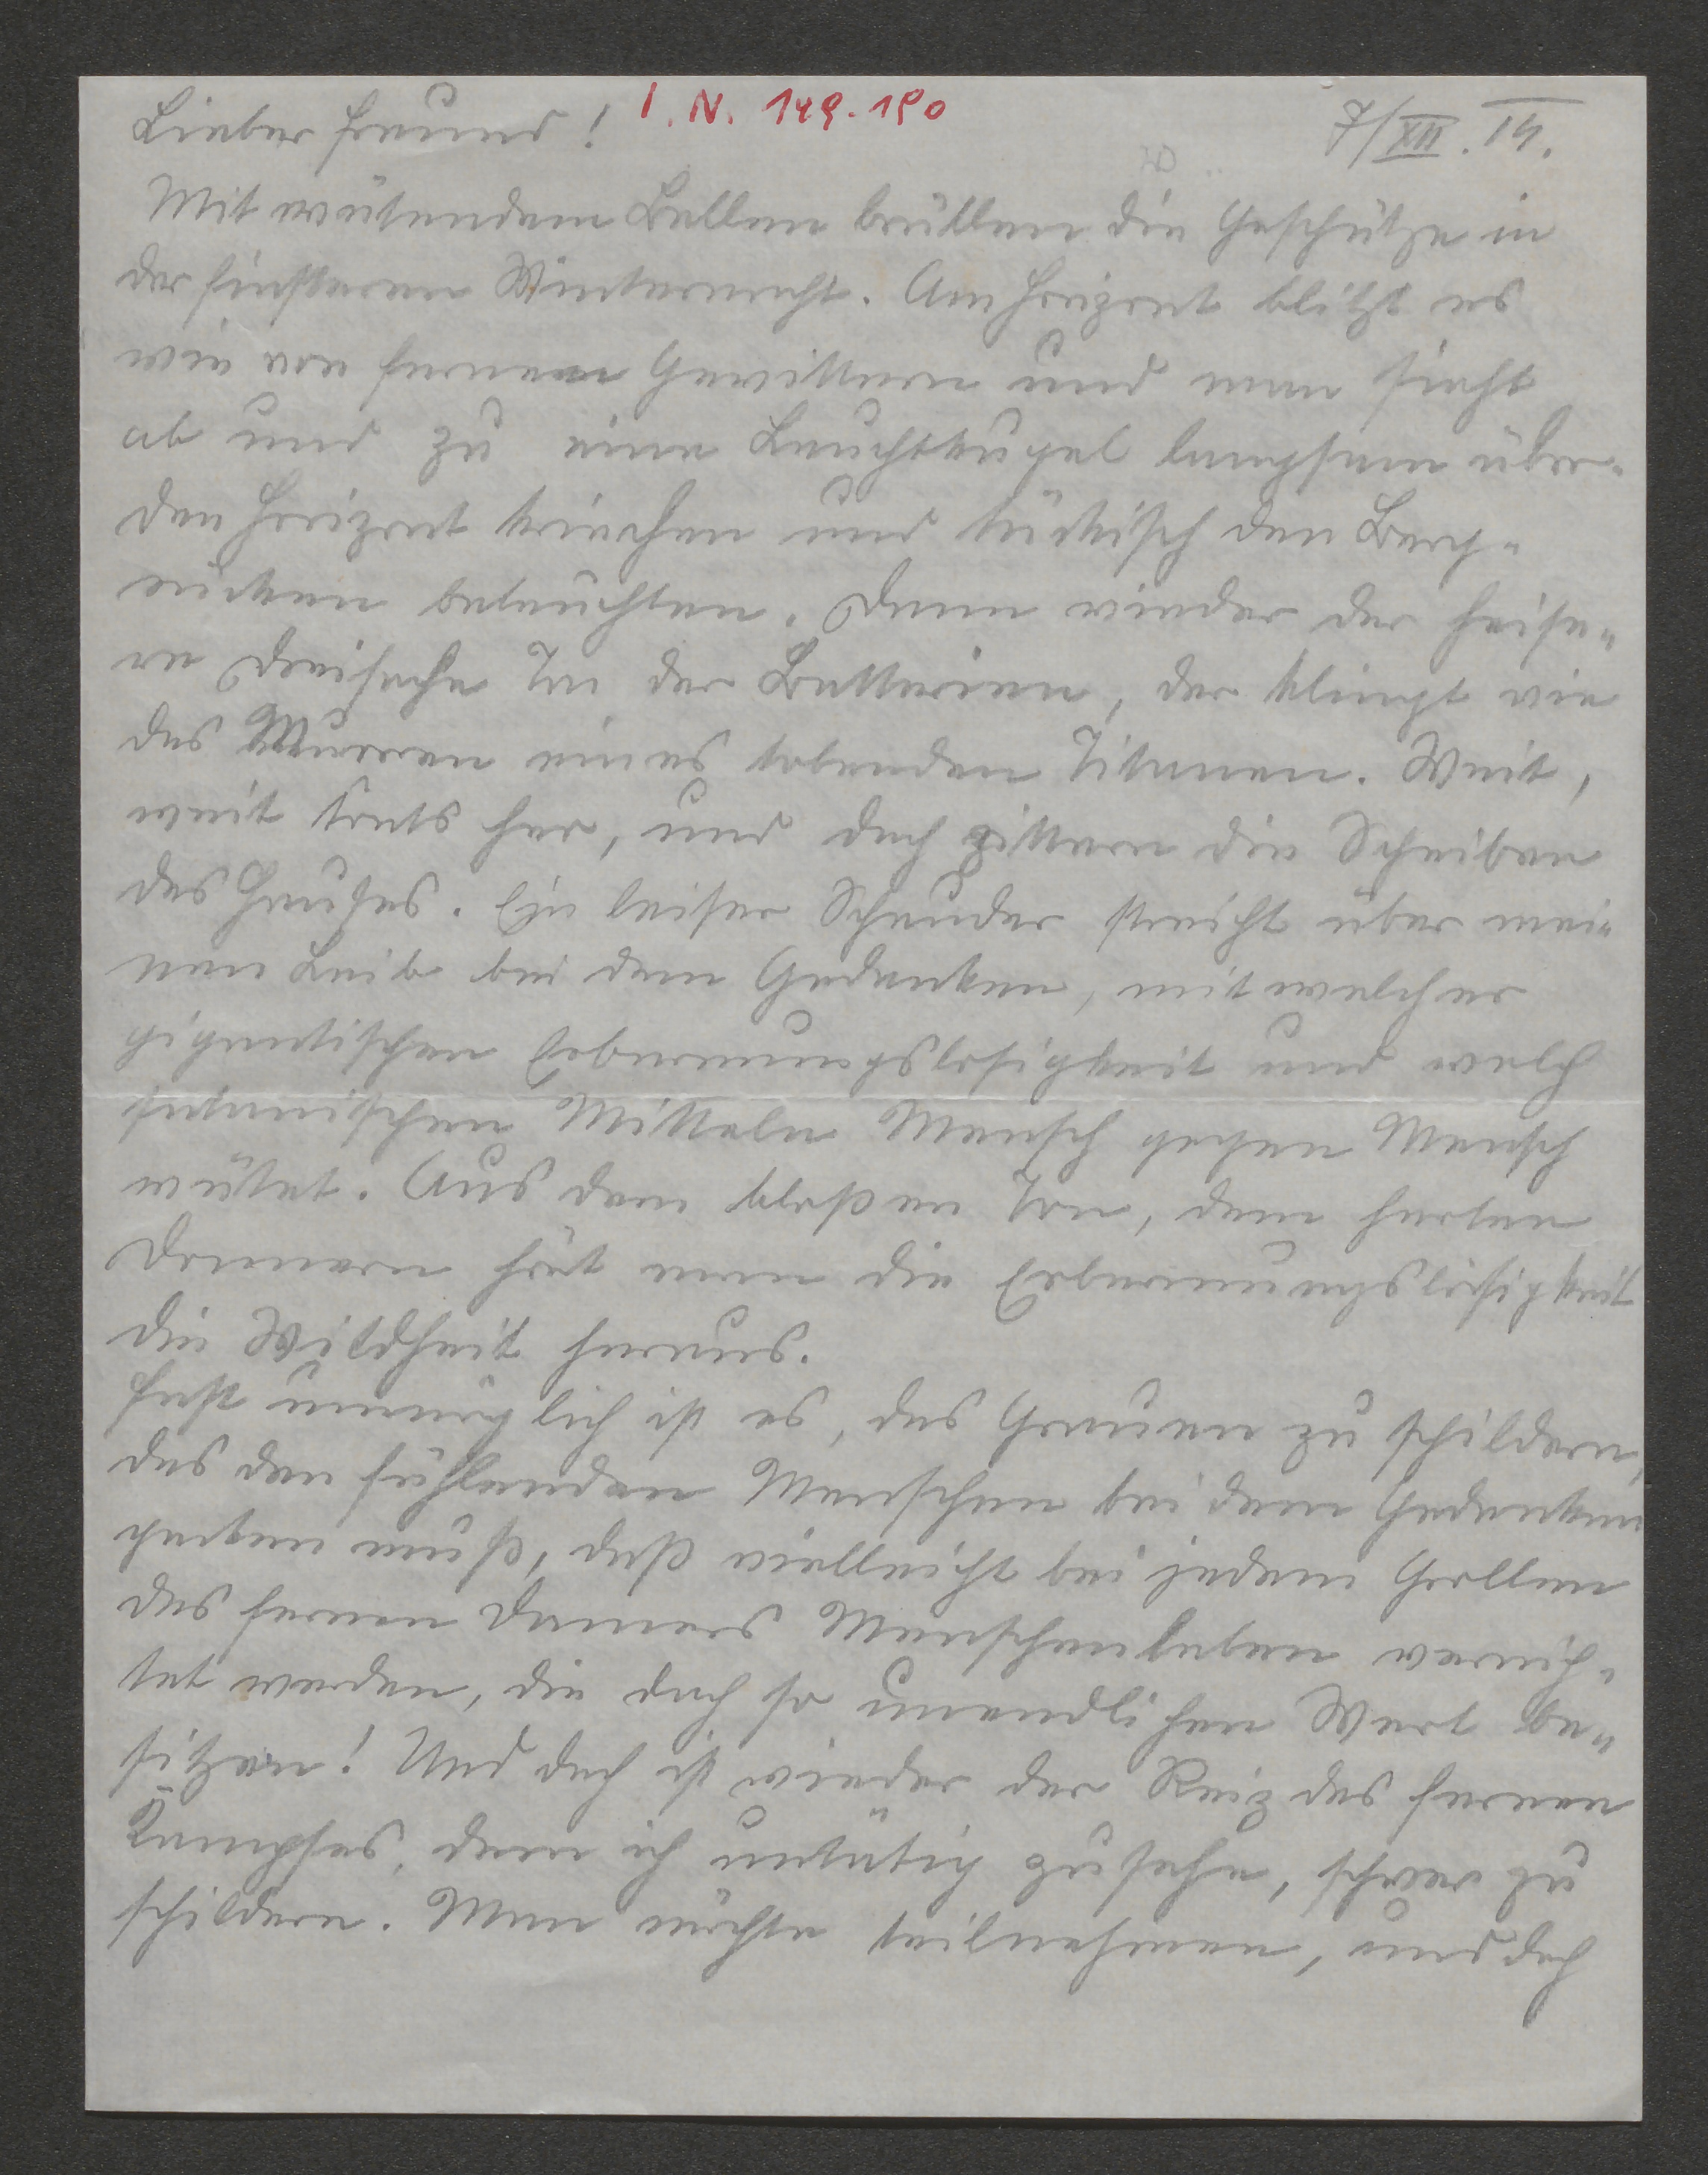 Lieber Freund! I. N. 149.190 7/XII. 14.
Mit wütendem Bellen brüllen die Geschütze in
der finsteren Winternacht. Am Horizont blitzt es
wie von fernen Gewittern und man sieht
ab und zu eine Leuchtkugel langsam über
den Horizont kriechen und tückisch den Berg-
rücken beleuchten. Dann wieder der heise-
re dreifache Ton der Batterien, der klingt wie
das Murren eines tobenden Titanen. Weit,
weit her, und doch zittern die Scheiben
des Hauses. Ein leiser Schauder streicht über mei-
nen Leib bei dem Gedanken, mit welcher
gigantischen Erbarmungslosigkeit und welch
satanischen Mitteln Mensch gegen Mensch
wütet. Aus dem bloßen Ton, dem harten
Donnern hört man die Erbarmungslosigkeit
die Wildheit heraus.
Fast unmöglich ist es, das Grauen zu schildern,
das den fühlenden Menschen bei dem Gedanken
packen muß, daß vielleicht bei jedem Grollen
des fernen Donners Menschenleben vernich-
tet werden, die doch so unendlichen Wert be-
sitzen! Und doch ist wieder der Reiz des fernen
Kampfes, dem ich untätig zusehe, schwer zu
schildern. Man möchte teilnehmen, und doch